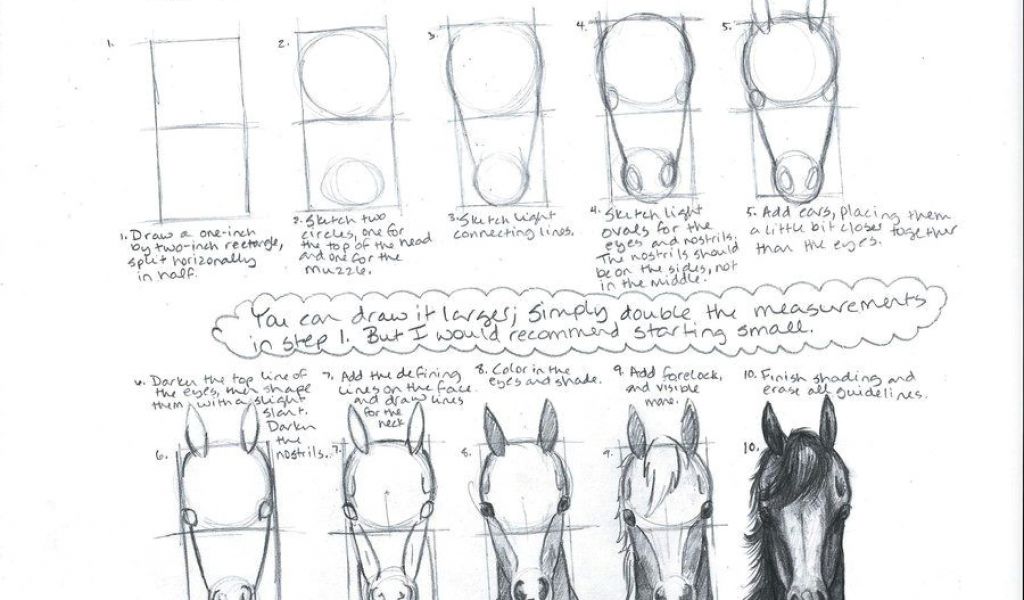 1.
2.
3.
4.
5.
1. Draw a one-inch
by two-inch rectangle,
split horizonally
in half.
2. Sketch two
circles, one for
the top of the head
and one for the
muzzle.
3. Sketch light
connecting lines.
4. Sketch light
ovals for the
eyes and nostrils.
The nostrils should
be on the sides, not
in the middle.
5. Add ears, placing them
a little bit closer together
than the eyes.
You can draw it larger; simply double the measurements
in step 1. But I would recommend starting small.
6. Darken the top line of
the eyes, then shape
them with a slight
slant.
Darken
the
nostrils.
7. Add the defining
lines on the face
and draw lines
for the
neck
8. Color in the
eyes and shade.
9. Add forelock,
and visible
mane.
10. Finish shading and
erase all guidelines.
6.
7.
8.
9.
10.